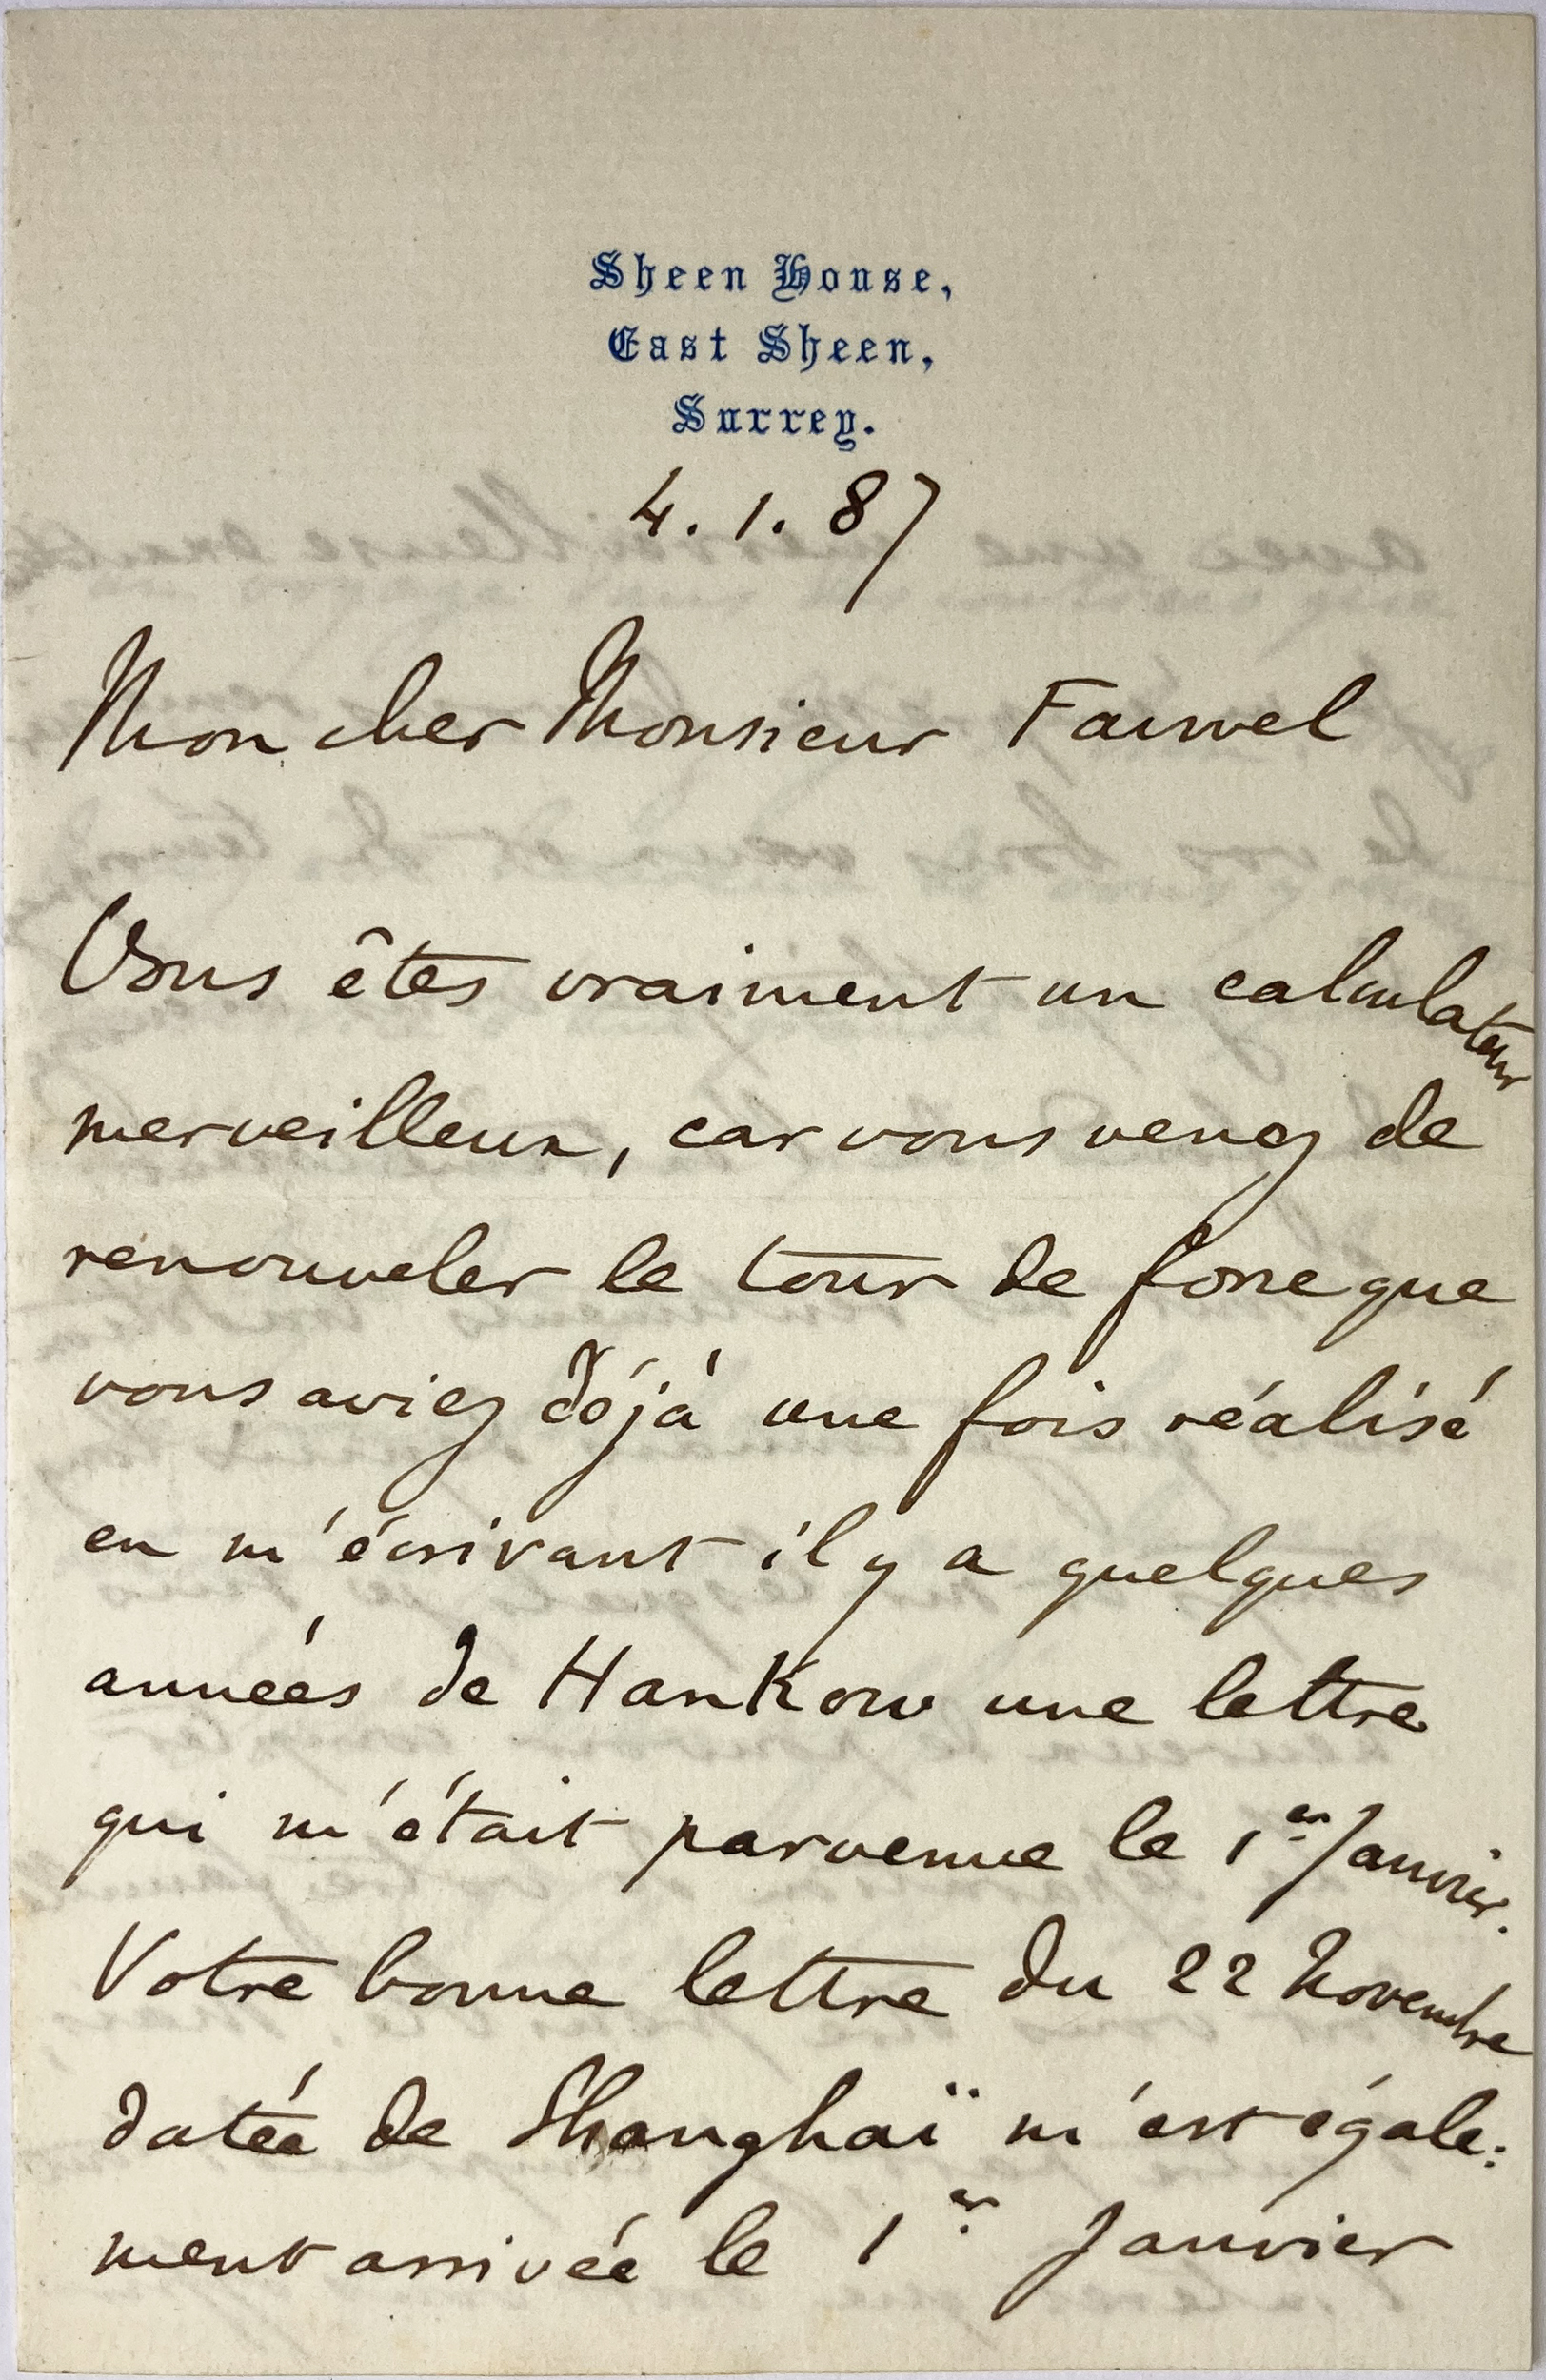 Sheen House,
East Sheen,
Surrey.
4. 1. 87
Mon cher Monsieur Fauvel
Vous êtes vraiment un calculateur
merveilleux, car vous venez de
renouveler le tour de force que
vous aviez déjà une fois réalisé
en m'écrivant il y a quelques
années de Hankow une lettre
qui m'était parvenue le 1er Janvier.
Votre bonne lettre du 22 Novembre
datée de Shanghaï m'est égale:
ment arrivée le 1er Janvier